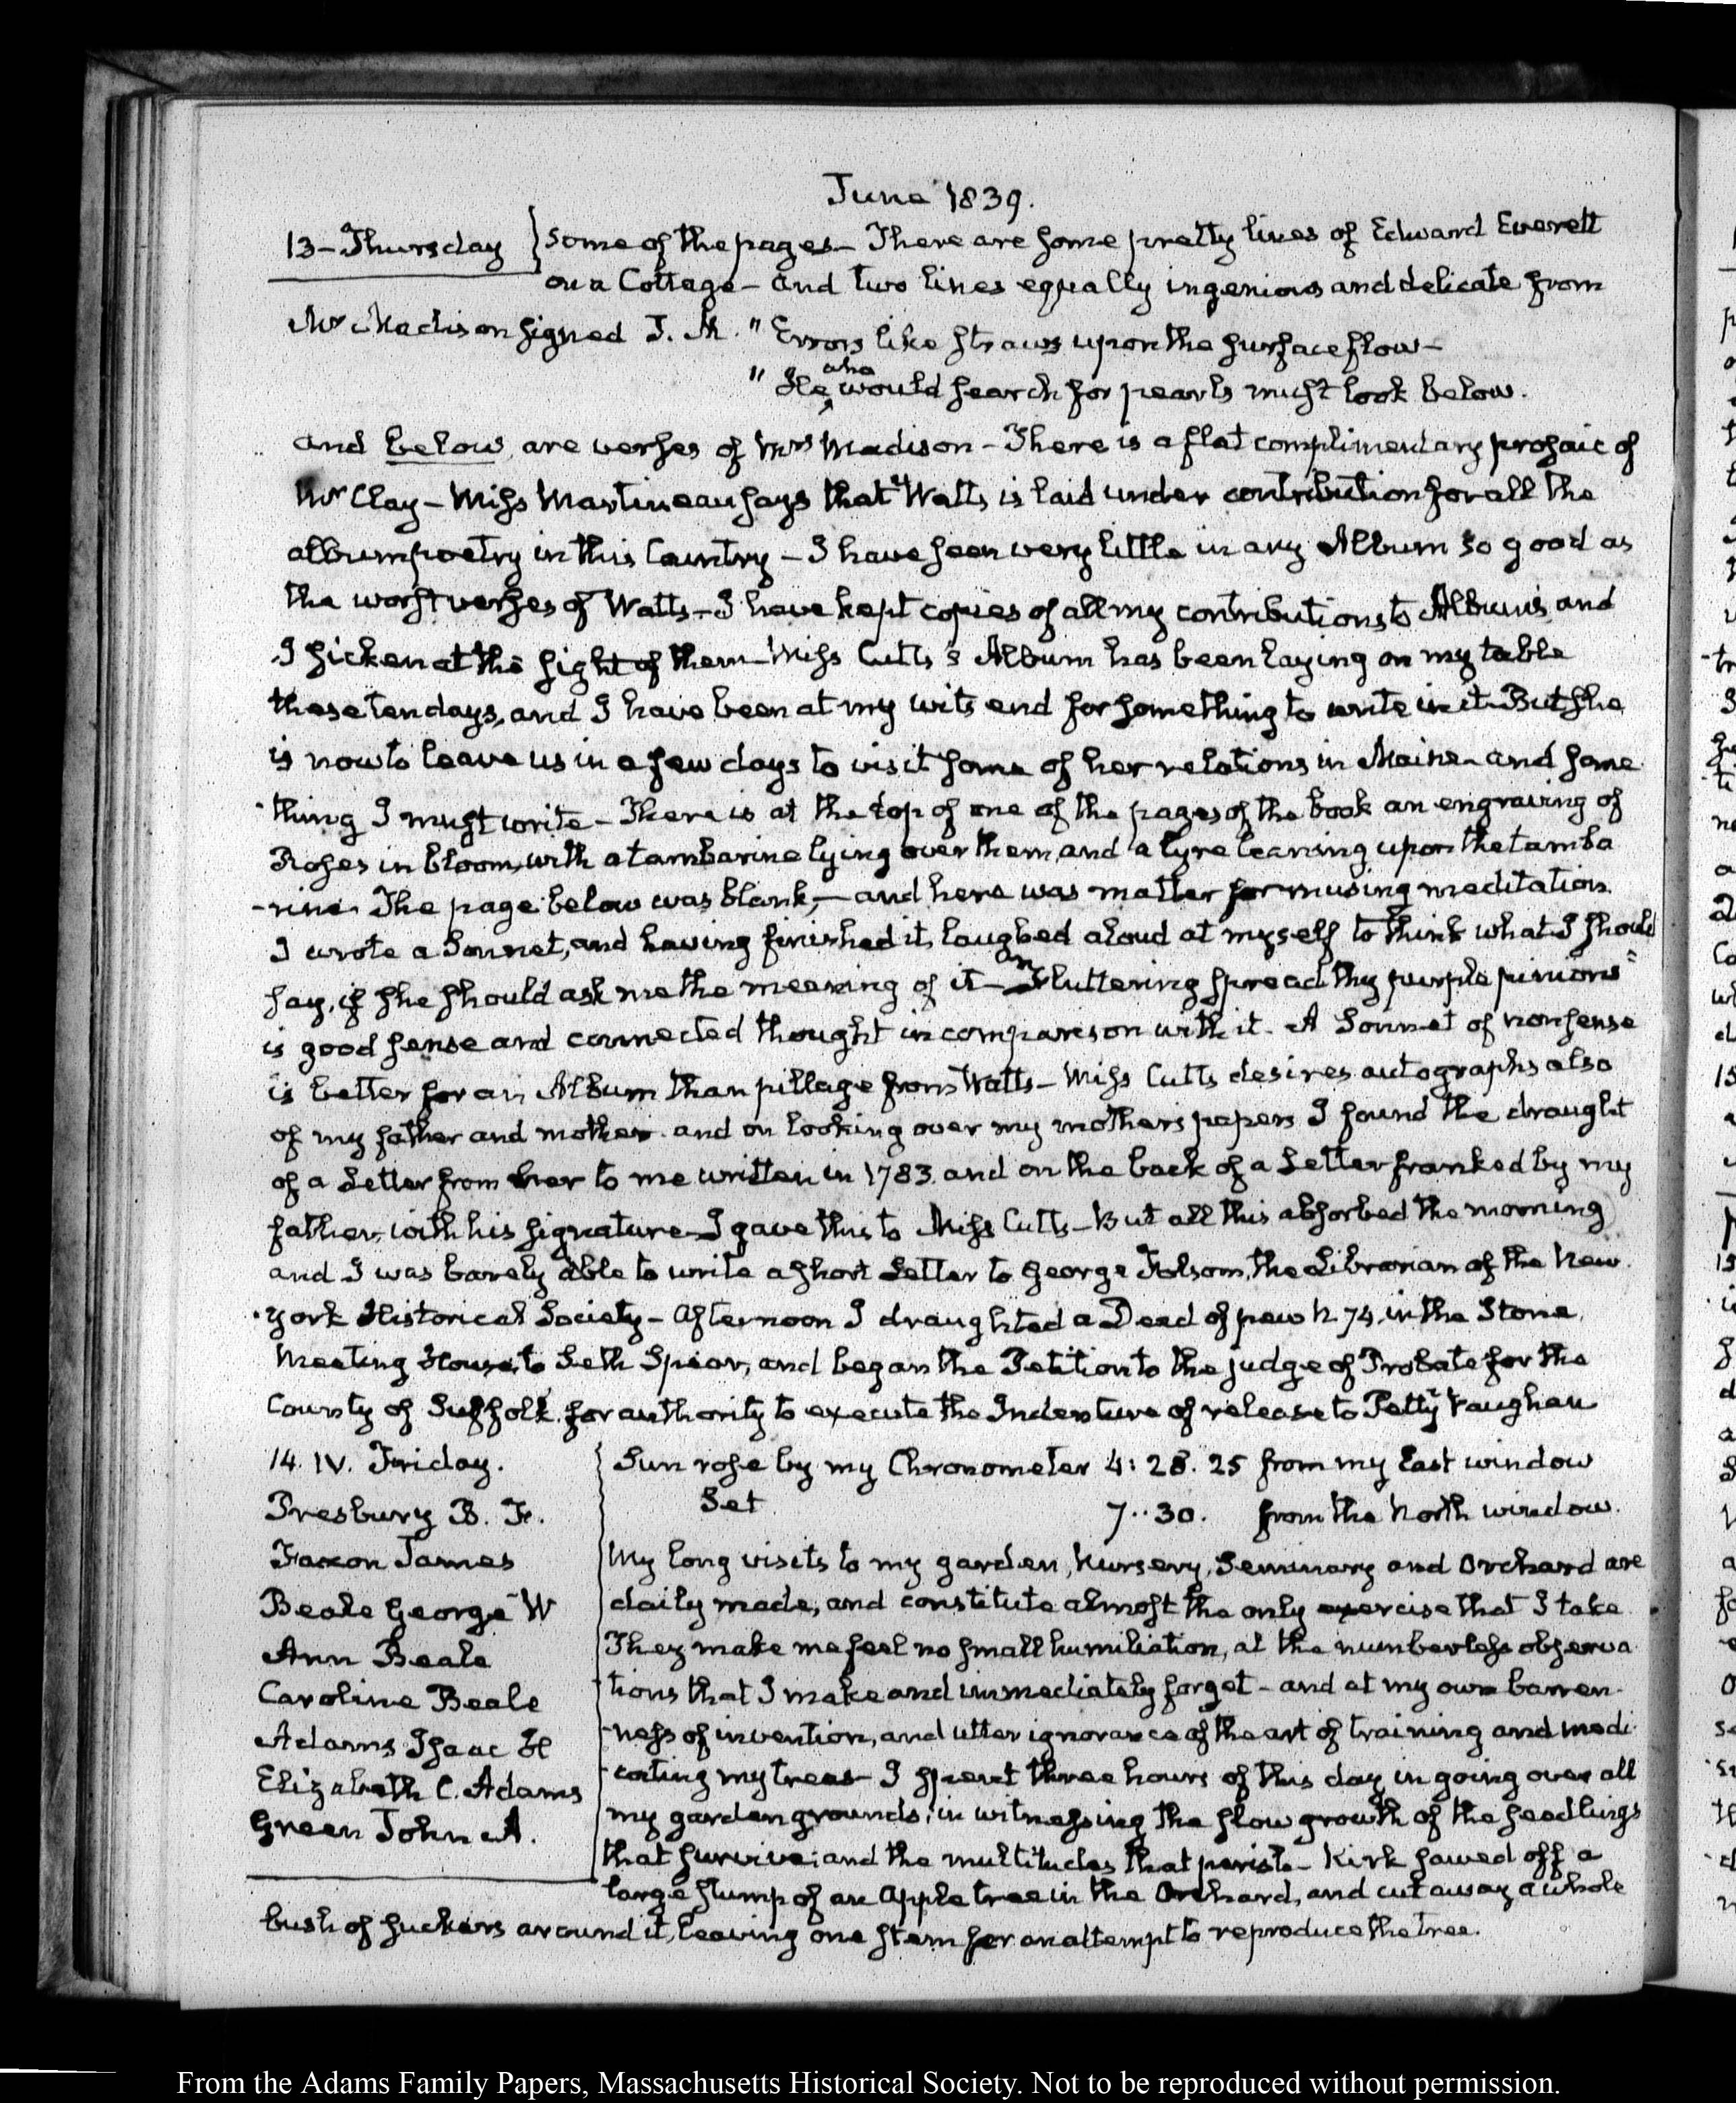 June 1839.
13 - Thursday } some of the pages - There are some pretty lines of Edward Everett
on a Cottage - and two lines equally ingenious and delicate from
Mr Madison signed J. M. " Errors like straws upon the surface flow -
" He who would search for pearls must look below.
and below are verses of Mrs Madison - There is a flat complimentary prosaic of
Mr Clay - Miss Martineau says that Watts is laid under contribution for all the
album poetry in this Country - I have seen very little in any Album so good as
the worst verses of Watts - I have kept copies of all my contributions to Albums and
I sicken at the sight of them - Miss Cutts's Album has been laying on my table
these ten days, and I have been at my wits end for something to write in it - But she
is now to leave us in a few days to visit some of her relations in Maine - and some
thing I must write - There is at the top of one of the pages of the book an engraving of
Roses in bloom, with a tambarine lying over them, and a lyre leaning upon the tamba
-rine. The page below was blank, - and here was matter for musing meditation.
I wrote a Sonnet, and having finished it, laughed aloud at myself to think what I should
say, if she should ask me the meaning of it - "Fluttering spread thy purple pinions"
is good sense and connected thought in comparison with it - A Sonnet of nonsense
is better for an Album than pillage from Watts - Miss Cutts desires autographs also
of my father and mother. and on looking over my mothers papers I found the draught
of a Letter from her to me written in 1783. and on the back of a Letter franked by my
father, with his signature - I gave this to Miss Cutts - But all this absorbed the morning
and I was barely able to write a short Letter to George Folsom, the Librarian of the New
York Historical Society - Afternoon I draughted a Deed of pew N. 74. in the Stone
Meeting House, to Seth Spear, and began the Petition to the judge of Probate for the
County of Suffolk, for authority to execute the Indenture of release to Petty Vaughan
14. IV. Friday. Sun rose by my Chronometer 4: 28. 25 from my East window
Presbury B. F. Set 7..30. from the North window.
Faxon James My long visits to my garden, Nursery, Seminary and Orchard are
Beale George W daily made, and constitute almost the only exercise that I take
Ann Beale They make me feel no small humiliation, at the numberless observa
Caroline Beale tions that I make and immediately forget - and at my own barren-
Adams Isaac H -ness of invention, and utter ignorance of the art of training and medi
Elizabeth C. Adams -cating my trees - I spent three hours of this day in going over all
Green John A. my garden grounds; in witnessing the slow growth of the seedlings
that survive; and the multitudes that perish - Kirk sawed off a
large stump of an Apple tree in the Orchard, and cut away a whole
bush of suckers around it, leaving one stem for an attempt to reproduce the tree.
From the Adams Family Papers, Massachusetts Historical Society. Not to be reproduced without permission.